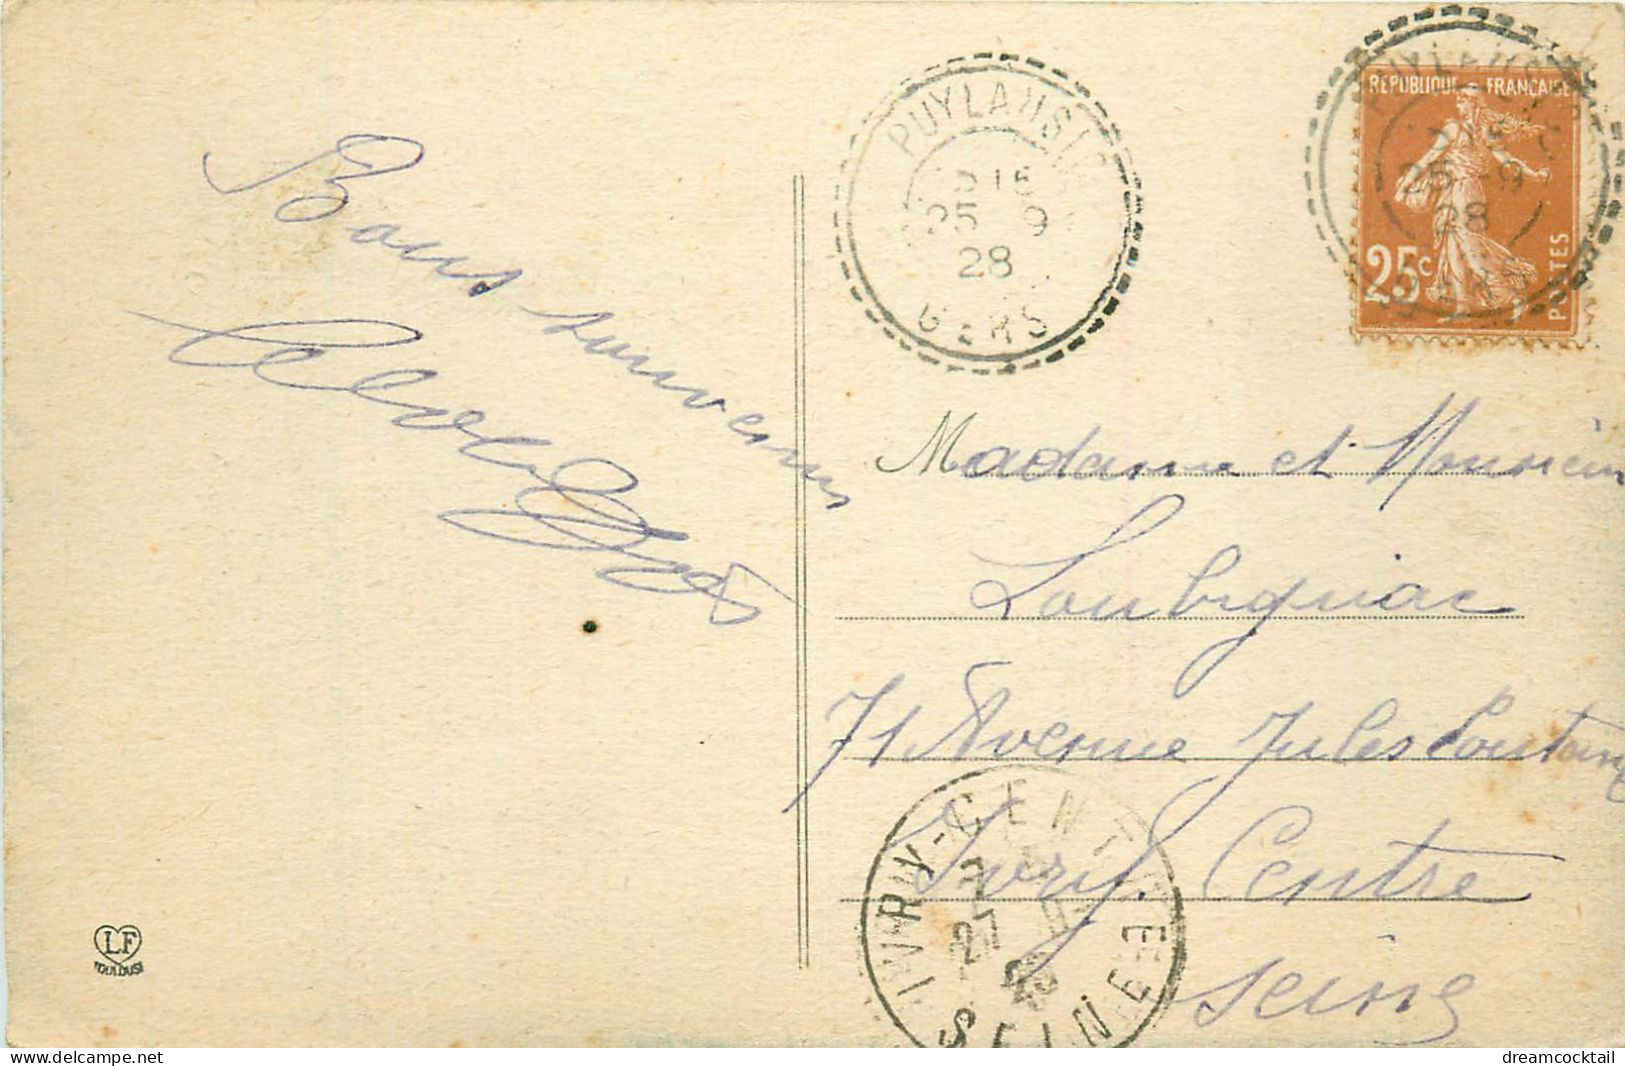 Bons souvenirs
PUYLAUSIC
25 9
28
GERS
REPUBLIQUE FRANCAISE
25c
POSTES
25 - 9
28
Madame et Monsieur
Loubignac
71 Avenue Jules Coutant
Ivry. Centre
Seine
IVRY-CENTRE
27
SEINE
LF
TOULOUSE
delcampe.net
dreamcocktail